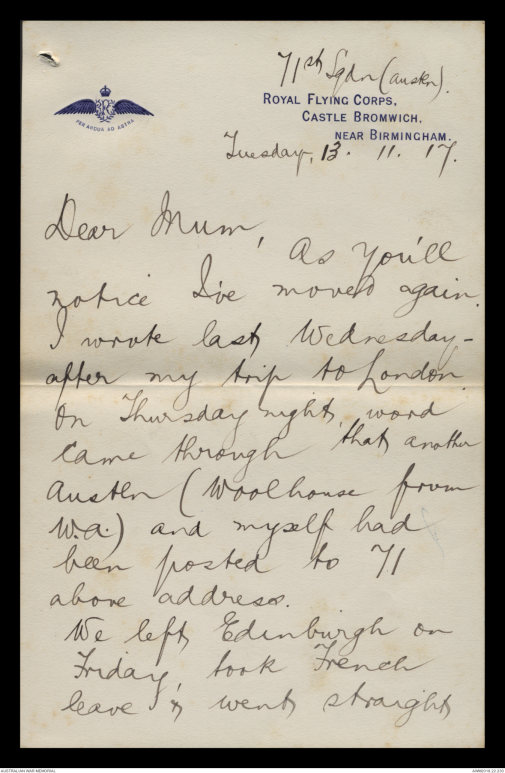 71st Sqdn (Austn).
ROYAL FLYING CORPS,
CASTLE BROMWICH,
NEAR BIRMINGHAM.
PER ARDUA AD ASTRA
Tuesday, 13. 11. 17.
Dear Mum,
As you'll
notice I've moved again.
I wrote last Wednesday -
after my trip to London.
On Thursday night, word
came through that another
Austln (Woolhouse from
W.A.) and myself had
been posted to 71
above address.
We left Edinburgh on
Friday, took French
leave & went straight
AUSTRALIAN WAR MEMORIAL